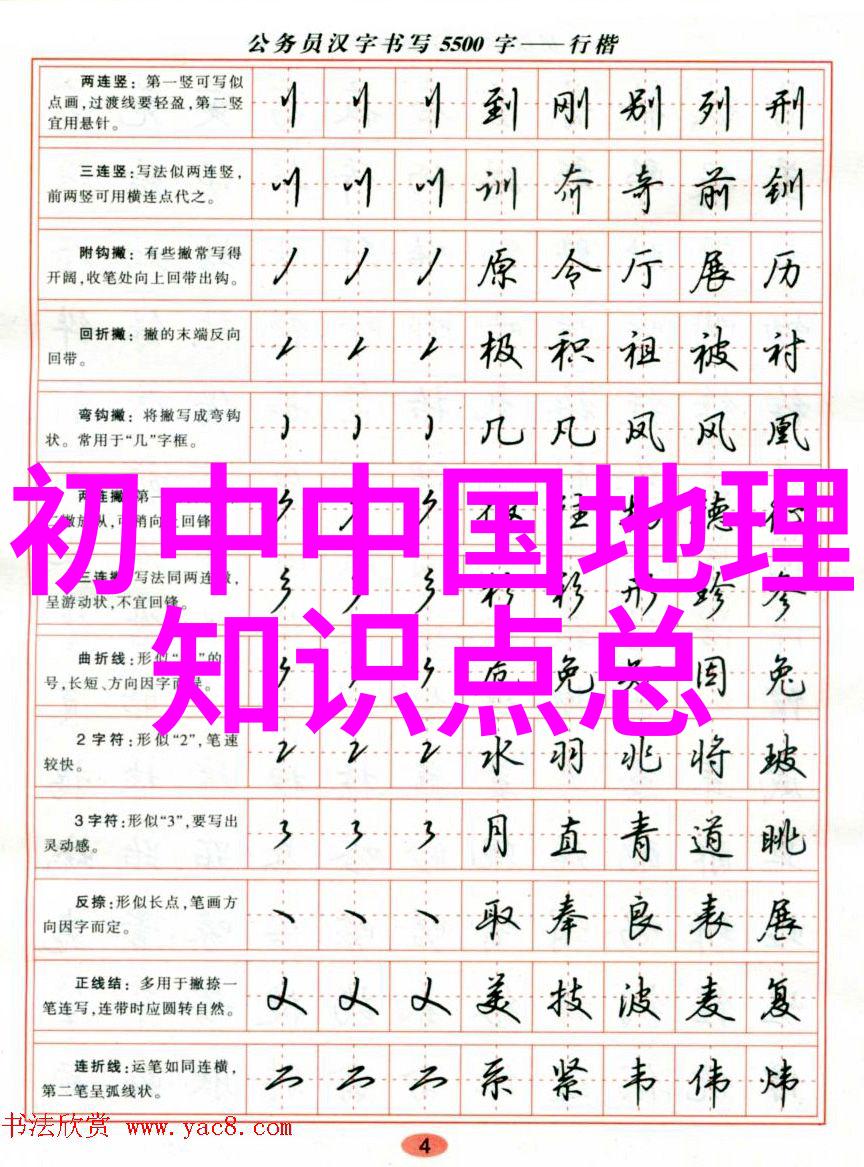 公务员汉字书写5500字——行楷
两连竖：第一竖可写似
点画，过渡线要轻盈，第二竖
宜用悬针。
到 刚 别 列 刑
三连竖：写法似两连竖，
前两竖可用横连点代之。
训 奔 奇 前 钏
附钩撇：有些撇常写得
开阔，收笔处向上回带出钩。
原 令 厅 展 历
回折撇：撇的末端反向
回带。
极 积 祖 被 衬
弯钩撇：将撇写成弯钩
状。常用于“几”字框。
几 凡 凤 风 凰
初中中国地理
知识点总
两连撇：第一
回锋
往 德
三连撇：写法同两连撇，
呈游动状，不宜回锋。
彩 形 珍 参
曲折线：形似 的
号，长短、方向因字而
免 因 兔
2字符：形似“2”，笔速
较快。
水 羽 兆 将 玻
3字符：形似“3”，要写出
灵动感。
月 直 青 道 眺
反捺：形似长点，笔画方
向因字而定。
取 奉 良 表 展
正线结：多用于撇捺一
笔连写，连带时应圆转自然。
美 技 波 麦 复
连折线：运笔如同连横，
第二笔呈弧线状。
系 紧 韦 伟 炜
书法欣赏 www.yac8.com
4